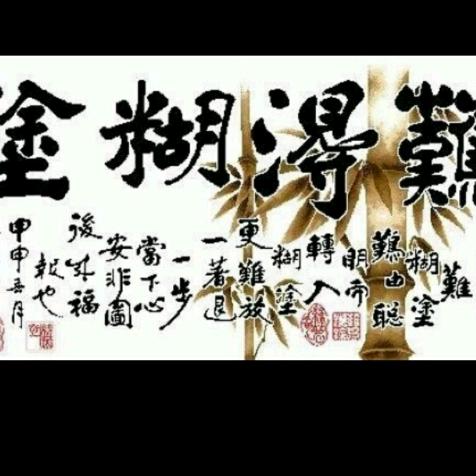 難淂糊塗
難
糊塗
難由聰
明而
轉入
糊塗
更難放
一著退
一步
當下心
安非圖
後來福
報也
甲申五月